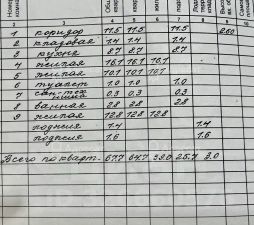 3 4 5 6 7 8 9 10
1 коридор 11.5 11.5 11.5 260
2 кладовая 1.4 1.4 1.4
3 кухня 8.7 8.7 8.7
4 жилая 16.1 16.1 16.1
5 жилая 10.1 10.1 10.1
6 туалет 1.0 1.0 1.0
7 0.3 0.3 0.3
8 ванная 2.8 2.8 2.8
9 жилая 12.8 12.8 12.8
лоджия 1.4 1.4
лоджия 1.6 1.6
Всего по кварт. 67.7 64.7 39.0 25.7 3.0